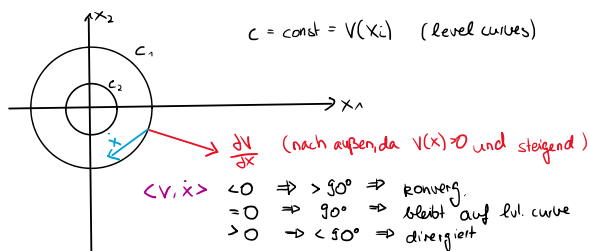 x₂
c = const = V(xi) (level curves)
C₁
C₂
x₁
ẋ
∂V/∂x (nach außen, da V(x)>0 und steigend)
<V, ẋ> <0 ⇒ > 90° ⇒ konverg.
=0 ⇒ 90° ⇒ bleibt auf lvl. curve
>0 ⇒ < 90° ⇒ divergiert